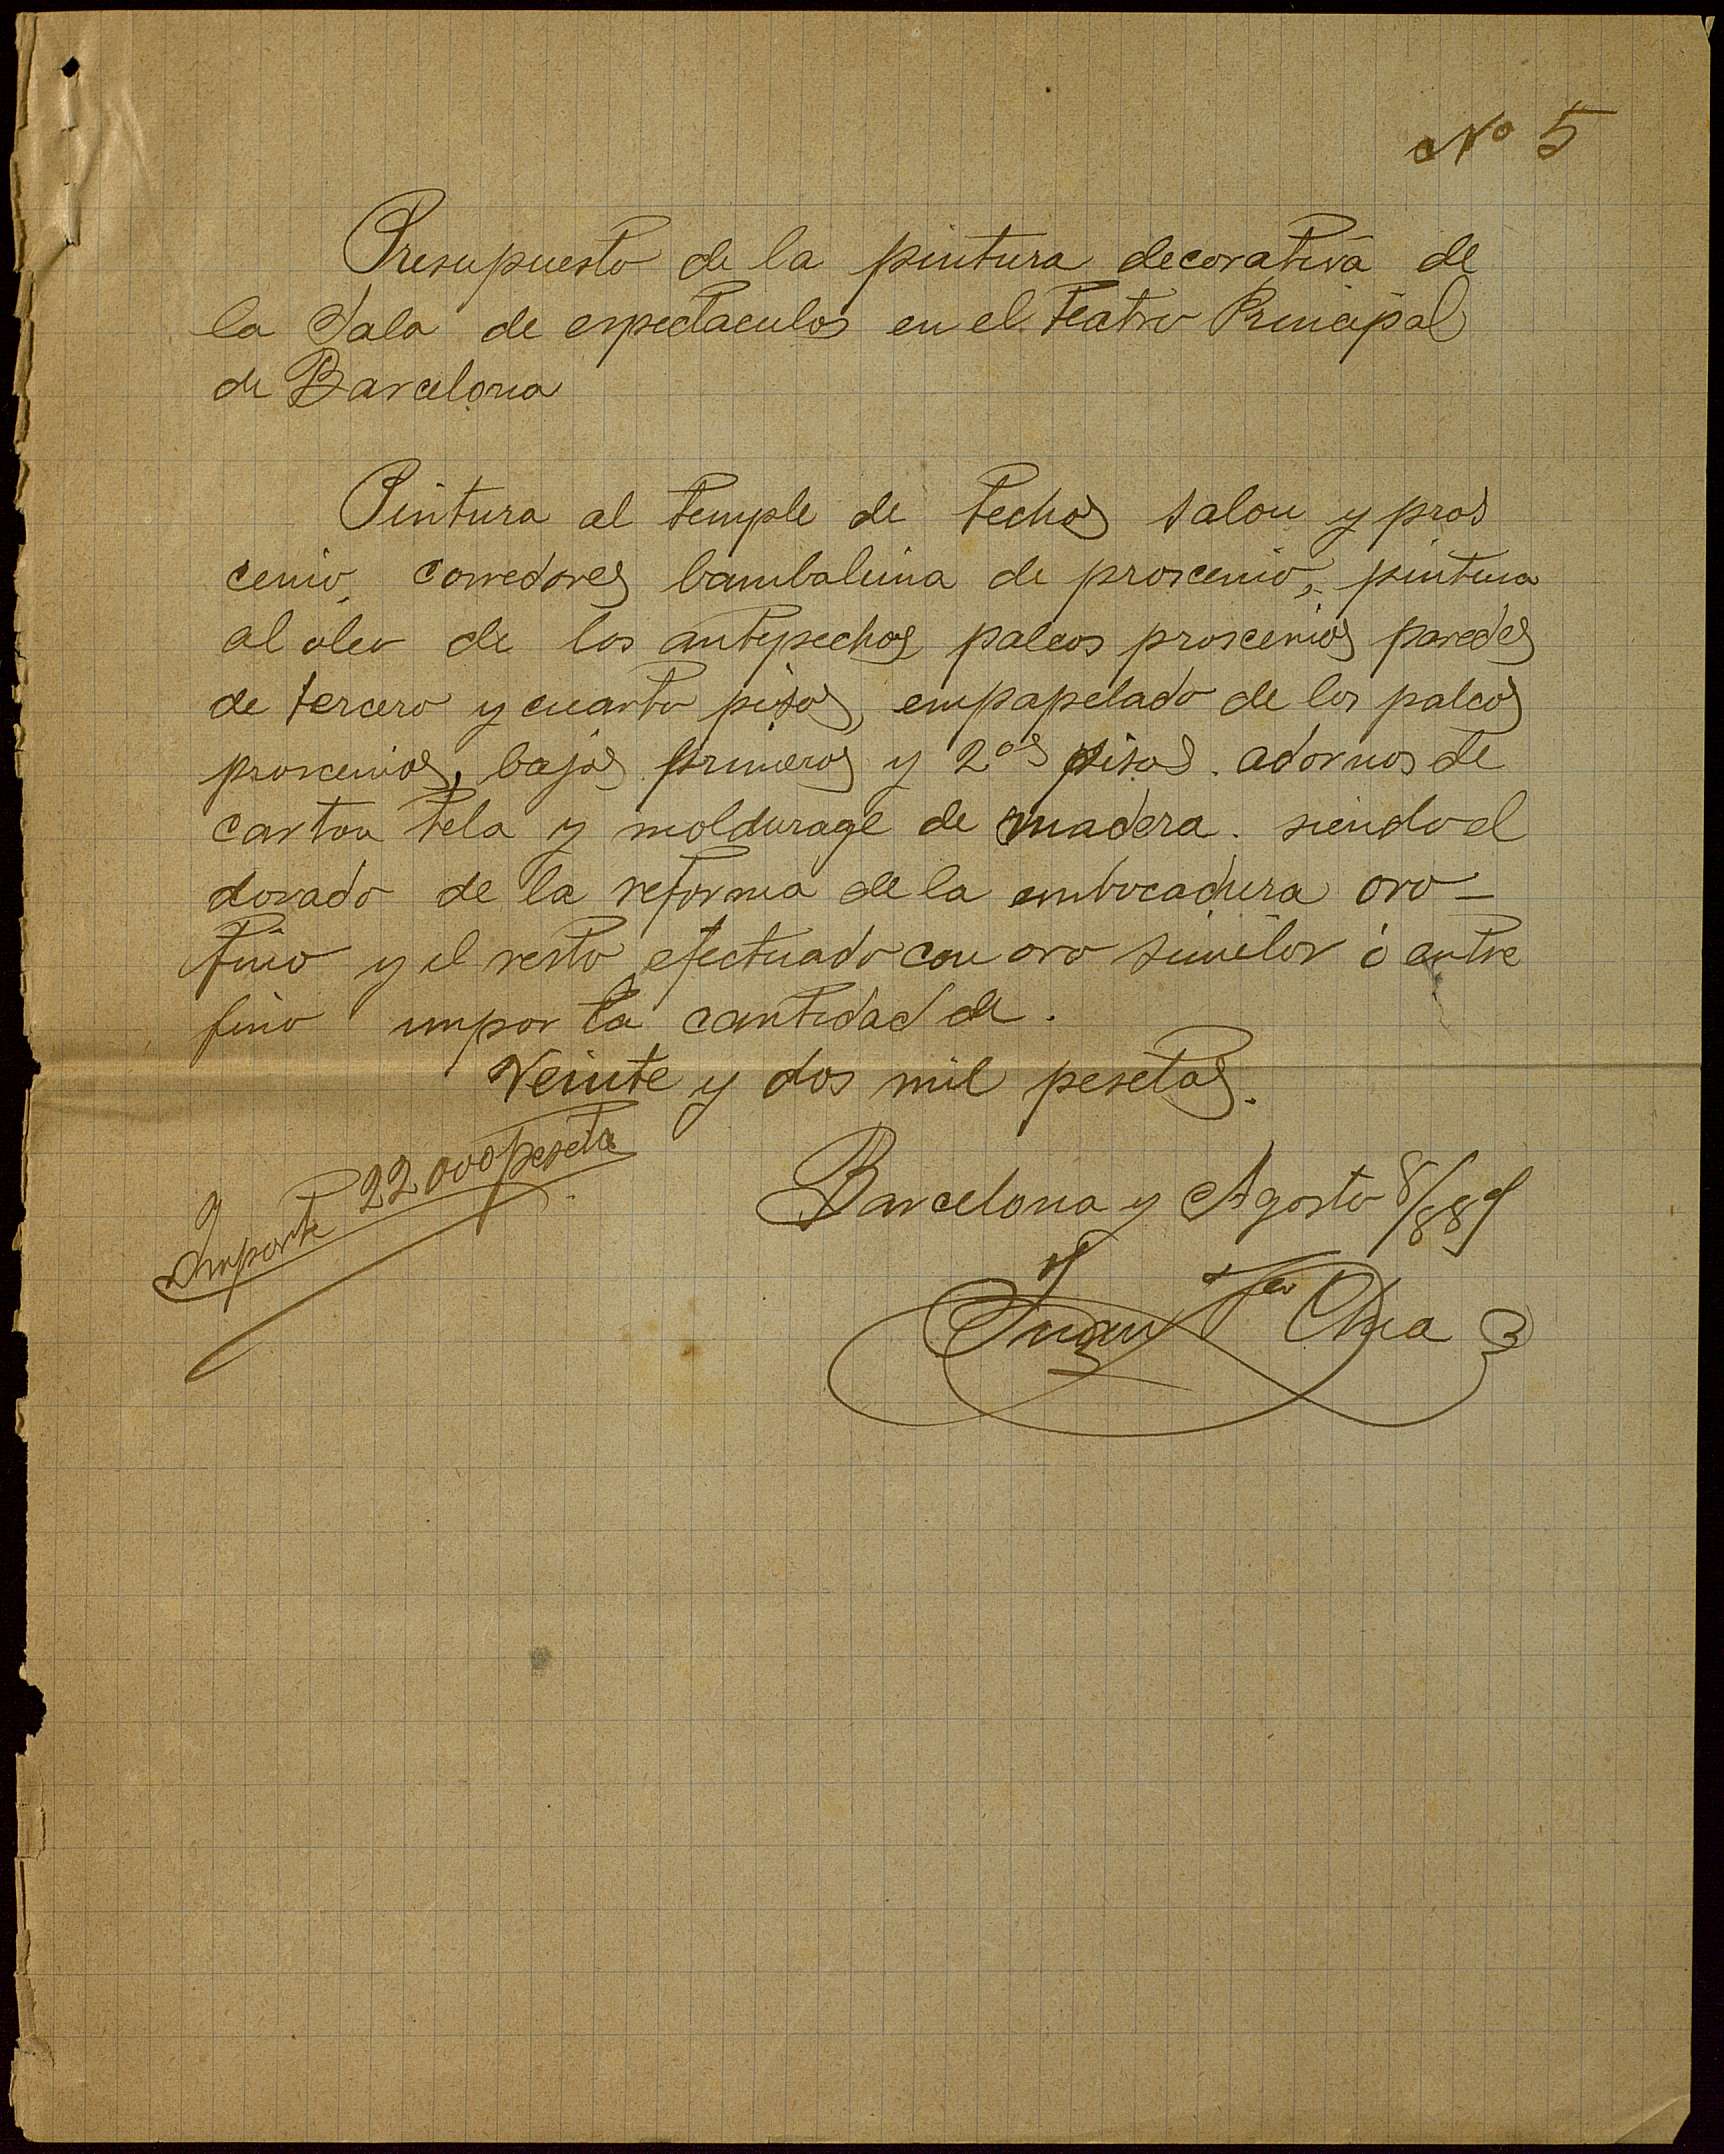 Nº 5
Presupuesto de la pintura decorativa de
la Sala de espectaculos en el Teatro Principal
de Barcelona
Pintura al temple de techos salon y pros
cenio, corredores bambalina de proscenio, pintura
al oleo de los antepechos palcos proscenios paredes
de tercero y cuarto pisos, empapelado de los palcos
proscenios, bajos primeros y 2os pisos. adornos de
carton tela y moldurage de madera. siendo el
dorado de la reforma de la embocadura oro-
fino y el resto efectuado con oro similor ó entre
fino importa cantidad de.
Veinte y dos mil pesetas.
Importe 22000 peseta
Barcelona y Agosto 8/889
Juan Fco Chia